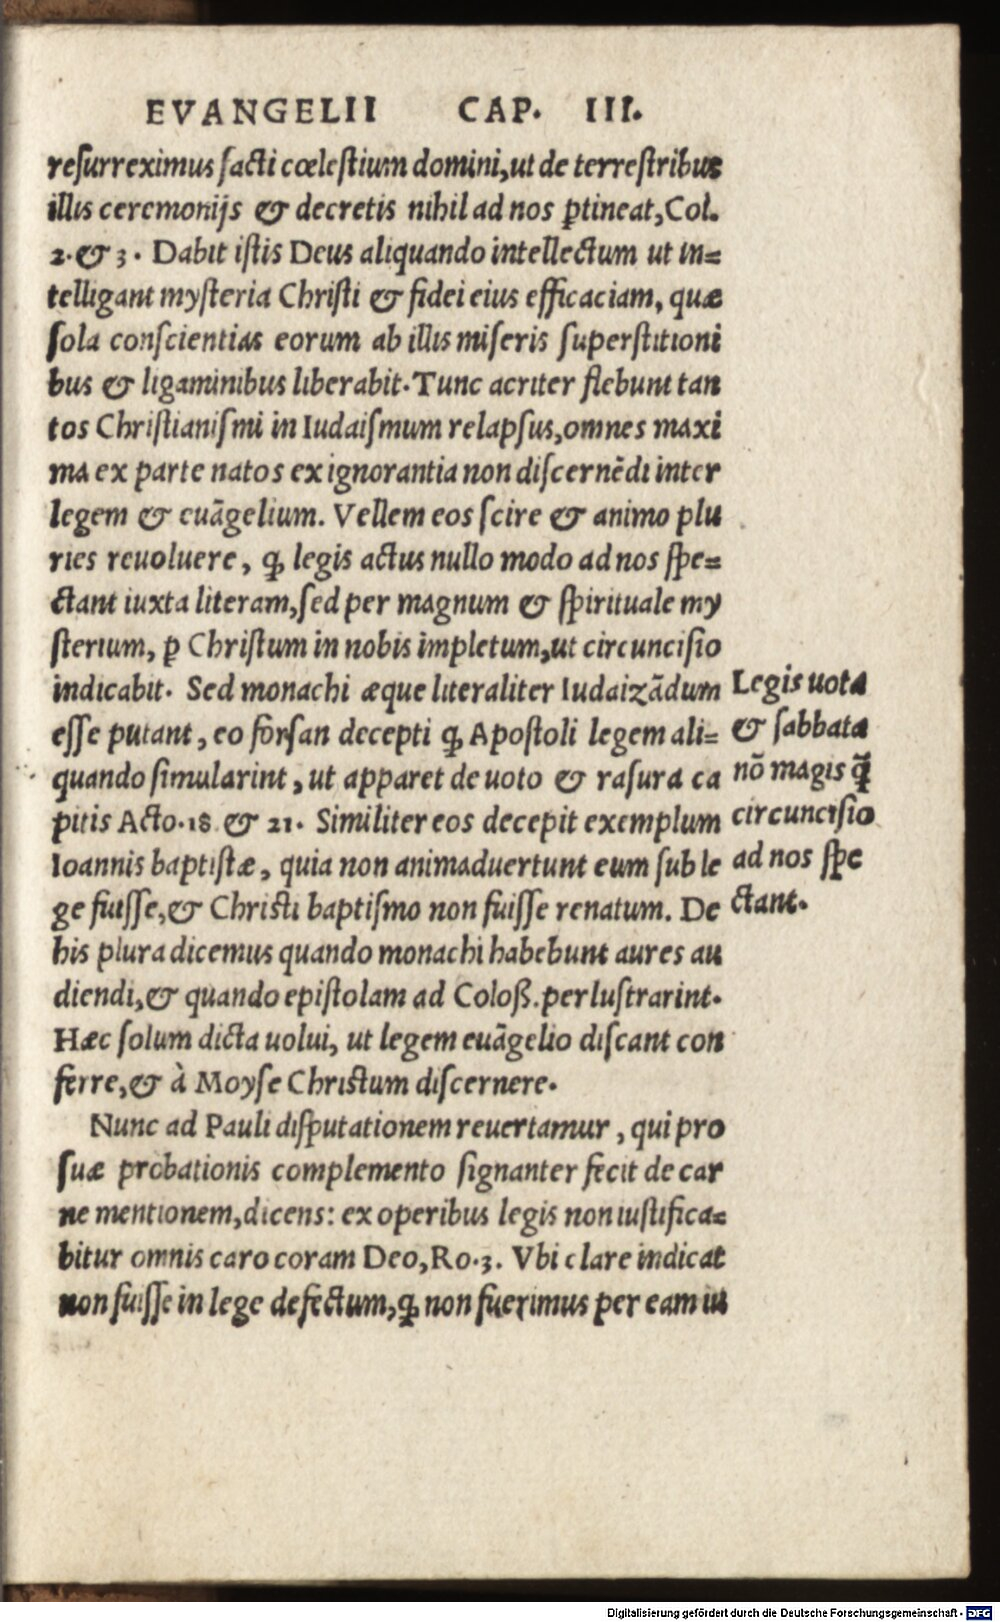 EVANGELII CAP. III.
resurreximus facti cœlestium domini, ut de terrestribus
illis ceremonijs & decretis nihil ad nos ꝑtineat, Col.
2. & 3. Dabit istis Deus aliquando intellectum ut in=
telligant mysteria Christi & fidei eius efficaciam, quæ
sola conscientias eorum ab illis miseris superstitioni
bus & ligaminibus liberabit. Tunc acriter flebunt tan
tos Christianismi in Iudaismum relapsus, omnes maxi
ma ex parte natos ex ignorantia non discernẽdi inter
legem & euãgelium. Vellem eos scire & animo plu
ries reuoluere, ꝙ legis actus nullo modo ad nos spe=
ctant iuxta literam, sed per magnum & spirituale my
sterium, ꝑ Christum in nobis impletum, ut circuncisio
indicabit. Sed monachi æque literaliter Iudaizãdum
esse putant, eo forsan decepti ꝙ Apostoli legem ali=
quando simularint, ut apparet de uoto & rasura ca
pitis Acto. 18 & 21. Similiter eos decepit exemplum
Ioannis baptistæ, quia non animaduertunt eum sub le
ge fuisse, & Christi baptismo non fuisse renatum. De
his plura dicemus quando monachi habebunt aures au
diendi, & quando epistolam ad Coloß. perlustrarint.
Hæc solum dicta uolui, ut legem euãgelio discant con
ferre, & à Moyse Christum discernere.
Nunc ad Pauli disputationem reuertamur, qui pro
suæ probationis complemento signanter fecit de car
ne mentionem, dicens: ex operibus legis non iustifica=
bitur omnis caro coram Deo, Ro. 3. Vbi clare indicat
non fuisse in lege defectum, ꝙ non fuerimus per eam iu
Legis uota
& sabbata
nõ magis q̃
circuncisio
ad nos spe
ctant.
Digitalisierung gefördert durch die Deutsche Forschungsgemeinschaft - DFG